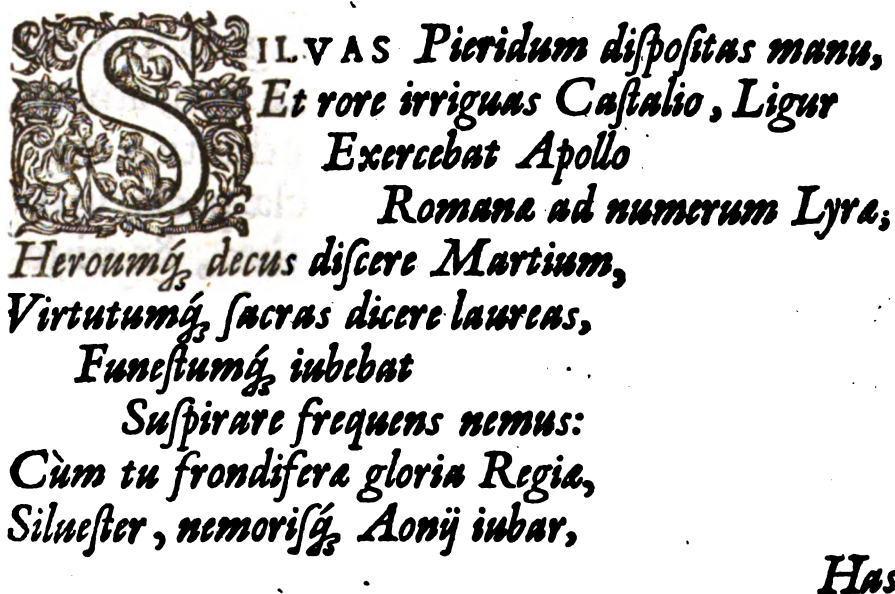 SILVAS Pieridum diſpoſitas manu,
Et rore irriguas Caſtalio, Ligur
Exercebat Apollo
Romanæ ad numerum Lyræ;
Heroumq́ꝫ decus diſcere Martium,
Virtutumq́ꝫ ſacras dicere laureas,
Funeſtumq́ꝫ iubebat
Suſpirare frequens nemus:
Cùm tu frondiferæ gloria Regiæ,
Silueſter, nemoriſq́ꝫ Aonÿ iubar,
Has